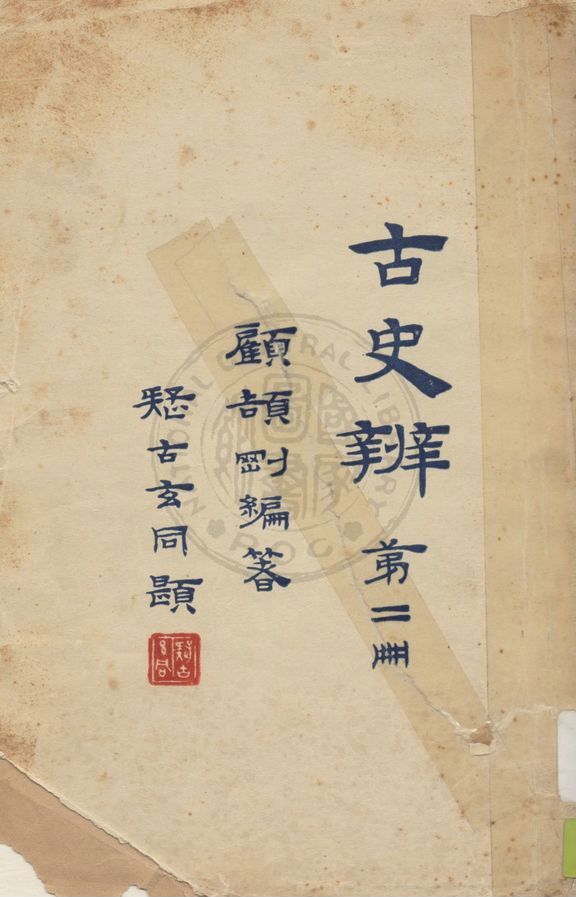 古史辨 第二冊
顧頡剛編著
疑古玄同題
疑古
NATIONAL CENTRAL LIBRARY
R.O.C.